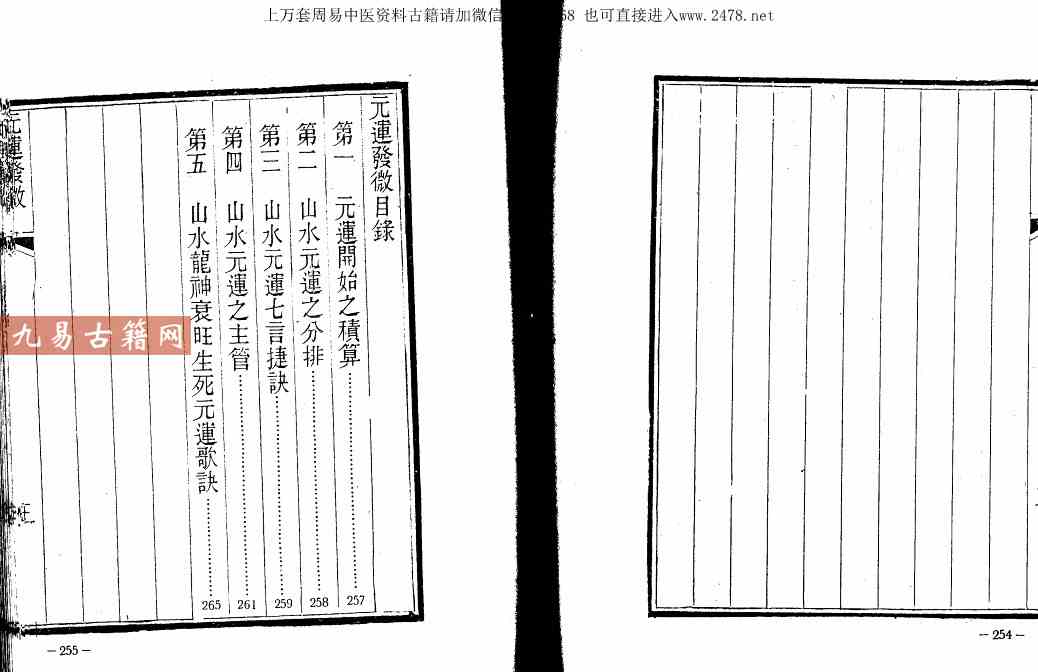 上万套周易中医资料古籍请加微信 58 也可直接进入www.2478.net
元運發微目錄
第一 元運開始之積算…………257
第二 山水元運之分排…………258
第三 山水元運七言捷訣…………259
第四 山水元運之主管…………261
第五 山水龍神衰旺生死元運歌訣…………265
元運發微
九易古籍网
－255－
－254－